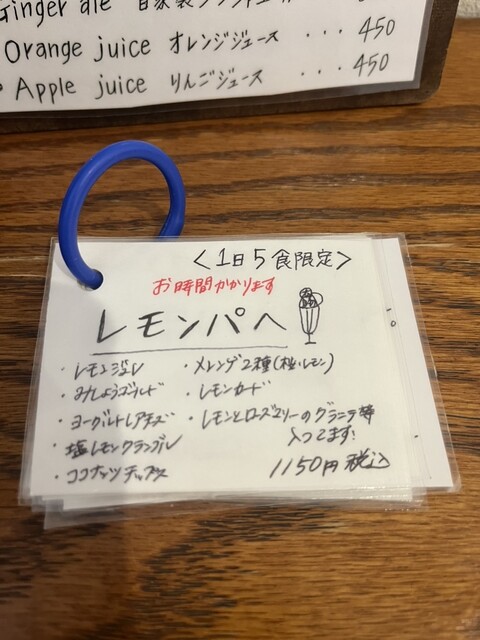 Ginger ale 自家製ジンジャエール
Orange juice オレンジジュース ... 450
Apple juice りんごジュース ... 450
<1日5食限定>
お時間かかります
レモンパへ
・レモンジュレ
・みしょうゴールド
・ヨーグルトレアチーズ
・塩レモンクランブル
・ココナッツチップス
・メレンゲ2種(桜・レモン)
・レモンカード
・レモンとローズマリーのグラニテ等
入ってます!
1150円税込